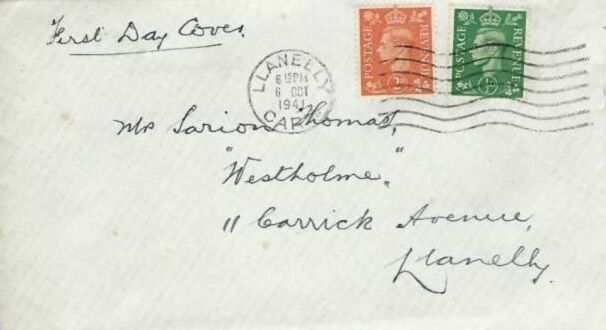 First Day Cover.
POSTAGE REVENUE
2D
POSTAGE REVENUE
LLANELLY
6 15 PM
6 OCT
1941
CAR
Mr Sarion Thomas,
"Westholme,"
11 Carrick Avenue,
Llanelly.